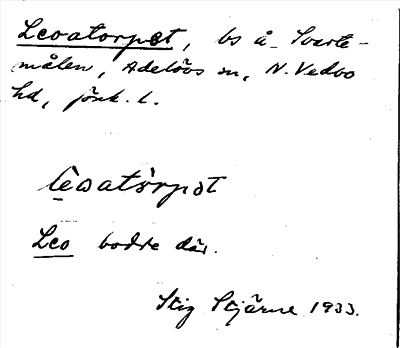 Leoatorpet, bs å Svarte-
målen, Adelövs sn, N. Vedbo
hd, Jönk. l.
lèoatòrpət
Leo bodde där.
Stig Stjärne 1933.